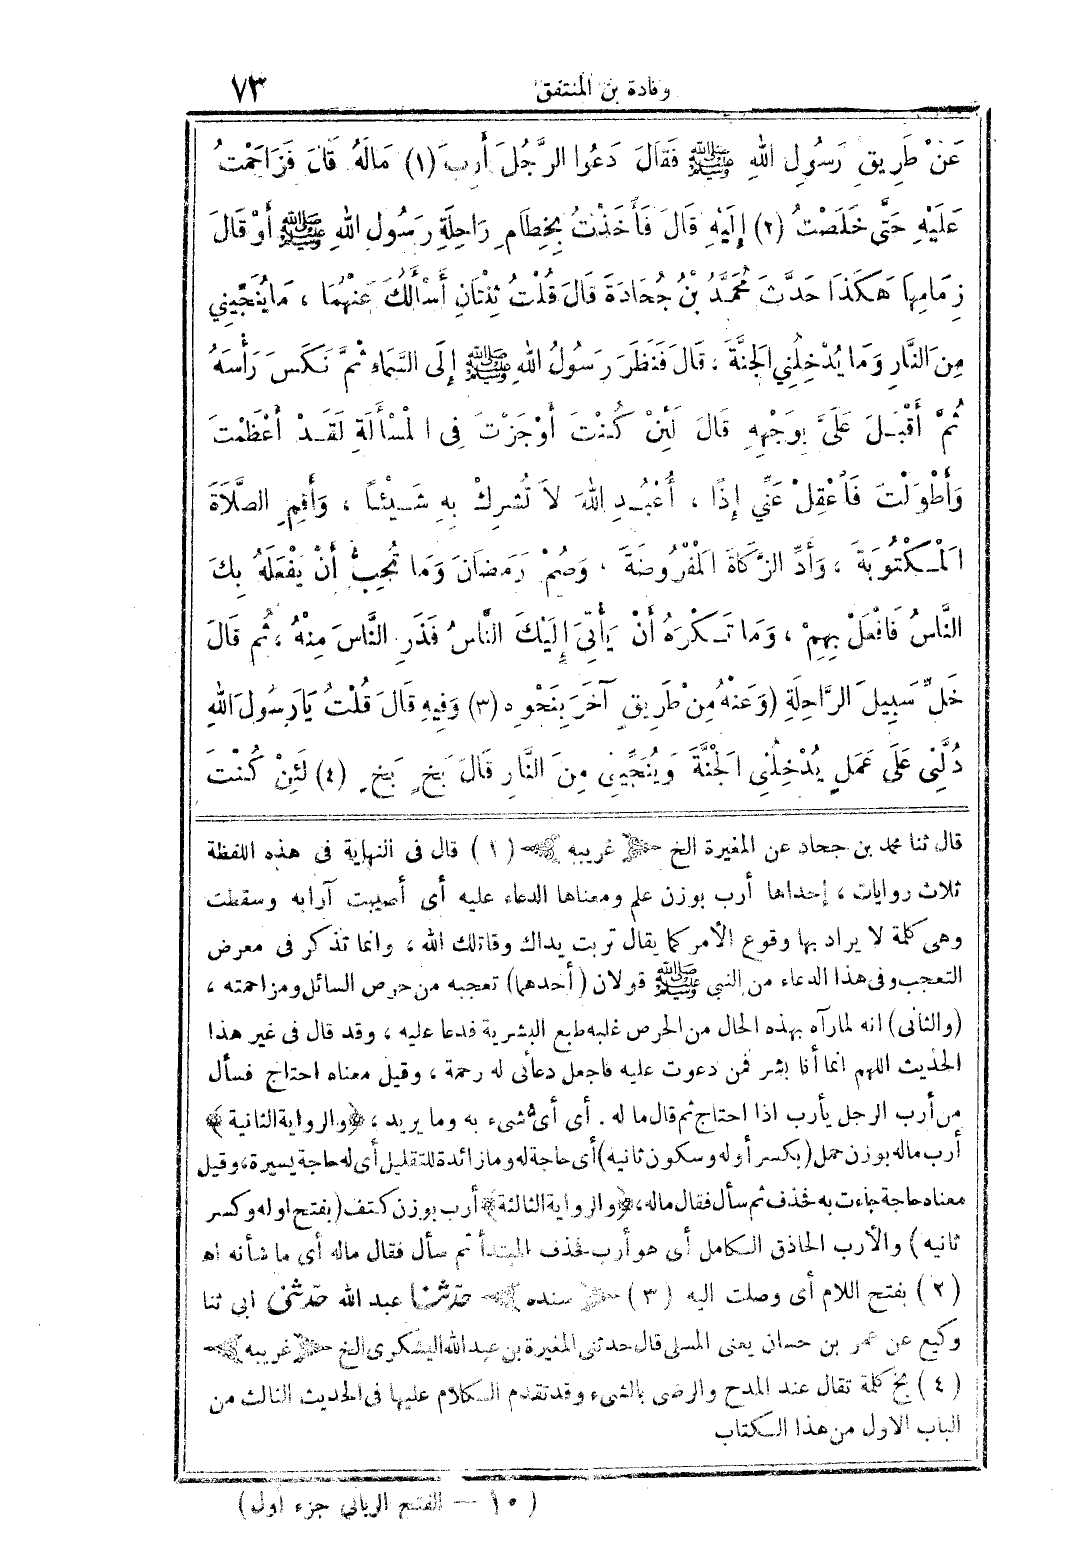 وفادة بن المنتفق ٧٣
عَنْ طَرِيقِ رَسُولِ اللهِ ﷺ فَقَالَ دَعُوا الرَّجُلَ أَرِبَ (١) مَالَهُ قَالَ فَزَاحَمْتُ
عَلَيْهِ حَتَّى خَلَصْتُ (٢) إِلَيْهِ قَالَ فَأَخَذْتُ بِخِطَامِ رَاحِلَةِ رَسُولِ اللهِ ﷺ أَوْ قَالَ
زِمَامِهَا هَكَذَا حَدَّثَ مُحَمَّدُ بْنُ جُحَادَةَ قَالَ قُلْتُ ثِنْتَانِ أَسْأَلُكَ عَنْهُمَا ، مَا يُنَجِّينِي
مِنَ النَّارِ وَمَا يُدْخِلُنِي الْجَنَّةَ ، قَالَ فَنَظَرَ رَسُولُ اللهِ ﷺ إِلَى السَّمَاءِ ثُمَّ نَكَسَ رَأْسَهُ
ثُمَّ أَقْبَلَ عَلَىَّ بِوَجْهِهِ قَالَ لَئِنْ كُنْتَ أَوْجَزْتَ فِى الْمَسْأَلَةِ لَقَدْ أَعْظَمْتَ
وَأَطْوَلْتَ فَاعْقِلْ عَنِّي إِذًا ، أُعْبُدِ اللهَ لاَ تُشْرِكْ بِهِ شَيْئًا ، وَأَقِمِ الصَّلَاةَ
الْمَكْتُوبَةَ ، وَأَدِّ الزَّكَاةَ الْمَفْرُوضَةَ . وَصُمْ رَمَضَانَ وَمَا تُحِبُّ أَنْ يَفْعَلَهُ بِكَ
النَّاسُ فَافْعَلْ بِهِمْ ، وَمَا تَكْرَهُ أَنْ يَأْتِيَ إِلَيْكَ النَّاسُ فَذَرِ النَّاسَ مِنْهُ ، ثُمَّ قَالَ
خَلِّ سَبِيلَ الرَّاحِلَةِ (وَعَنْهُ مِنْ طَرِيقٍ آخَرَ بِنَحْوِهِ (٣) وَفِيهِ قَالَ قُلْتُ يَا رَسُولَ اللهِ
دُلَّنِى عَلَى عَمَلٍ يُدْخِلُنِي الْجَنَّةَ وَيُنَجِّينِى مِنَ النَّارِ قَالَ بَخٍ بَخٍ (٤) لَئِنْ كُنْتَ
قال ثنا محمد بن جحاد عن المغيرة الخ غريبه (١) قال فى النهاية فى هذه اللفظة
ثلاث روايات ، إحداها أرب بوزن علم ومعناها الدعاء عليه أى أصيبت آرابه وسقطت
وهى كلمة لا يراد بها وقوع الأمر كما يقال تربت يداك وقاتلك الله ، وانما تذكر فى معرض
التعجب وفى هذا الدعاء من النبى ﷺ قولان (أحدهما) تعجبه من حرص السائل ومزاحمته ،
(والثانى) انه لما رآه بهذه الحال من الحرص غلبه طبع البشرية فدعا عليه ، وقد قال فى غير هذا
الحديث اللهم انما أنا بشر فمن دعوت عليه فاجعل دعائى له رحمة ، وقيل معناه احتاج فسأل
من أرب الرجل يأرب اذا احتاج ثم قال ما له . أى أى شىء به وما يريد ، ﴿والرواية الثانية﴾
أرب ماله بوزن حمل (بكسر أوله وسكون ثانيه) أى حاجة له وما زائدة للتقليل أى له حاجة يسيرة ، وقيل
معناه حاجة جاءت به فحذف ثم سأل فقال ماله ، ﴿والرواية الثالثة﴾ أرب بوزن كتف (بفتح اوله وكسر
ثانيه) والأرب الحاذق الكامل أى هو أرب فحذف المبتدأ ثم سأل فقال ماله أى ما شأنه اه
(٢) بفتح اللام أى وصلت اليه (٣) سنده حدثنا عبد الله حدثنى ابى ثنا
وكيع عن عمر بن حسان يعنى المسلى قال حدثنى المغيرة بن عبد الله اليشكرى الخ غريبه
(٤) بخ كلمة تقال عند المدح والرضى بالشىء وقد تقدم الكلام عليها فى الحديث الثالث من
الباب الاول من هذا الكتاب
(١٠ — الفتح الرباني جزء اول)